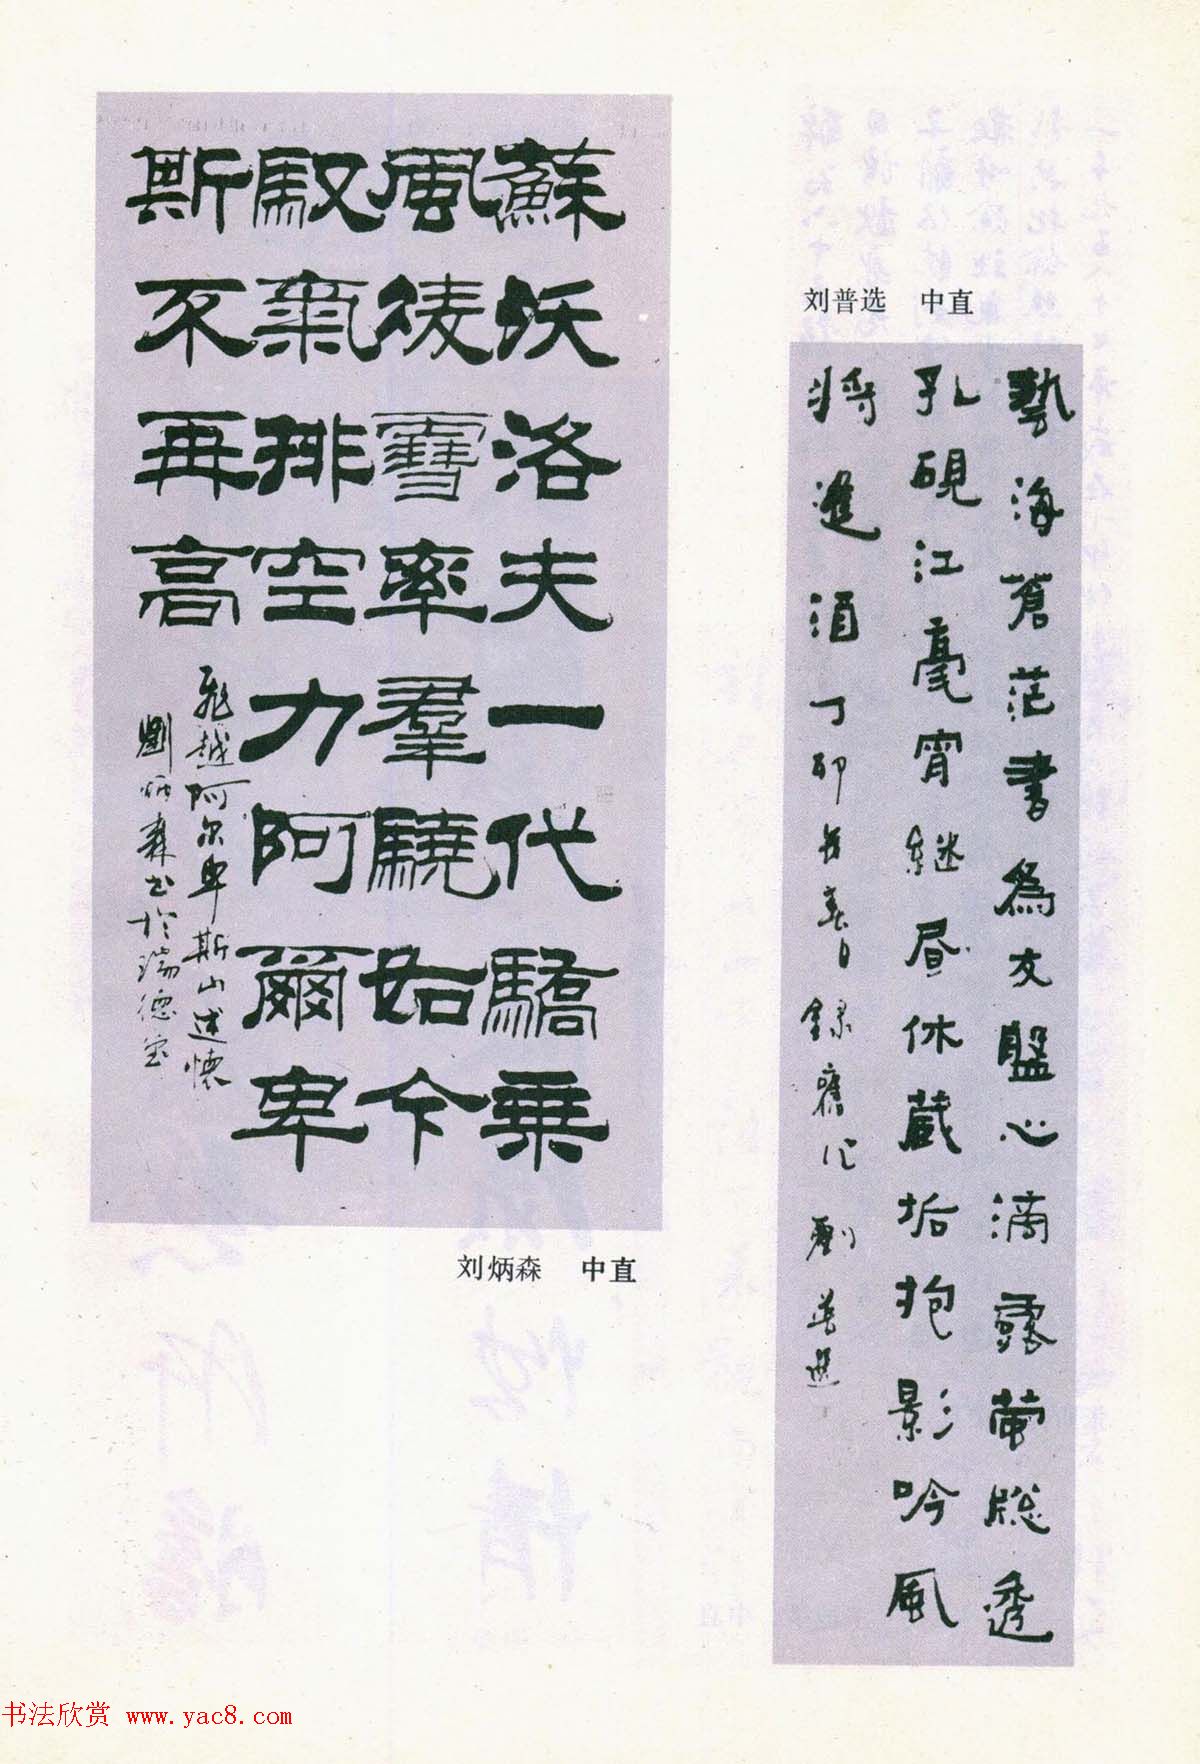 刘普选 中直
藝海蒼茫書為友盤心滴露螢牕透
孔硯江毫宵継昼休藏垢抱影吟風
将進酒丁卯春日録舊作劉普選
蘇沃洛夫一代驕乘
風凌雪率羣驍如今
馭氣排空力阿爾卑
斯不再高
飛越阿尔卑斯山述懷
劉炳森书於瑞德
刘炳森 中直
书法欣赏 www.yac8.com